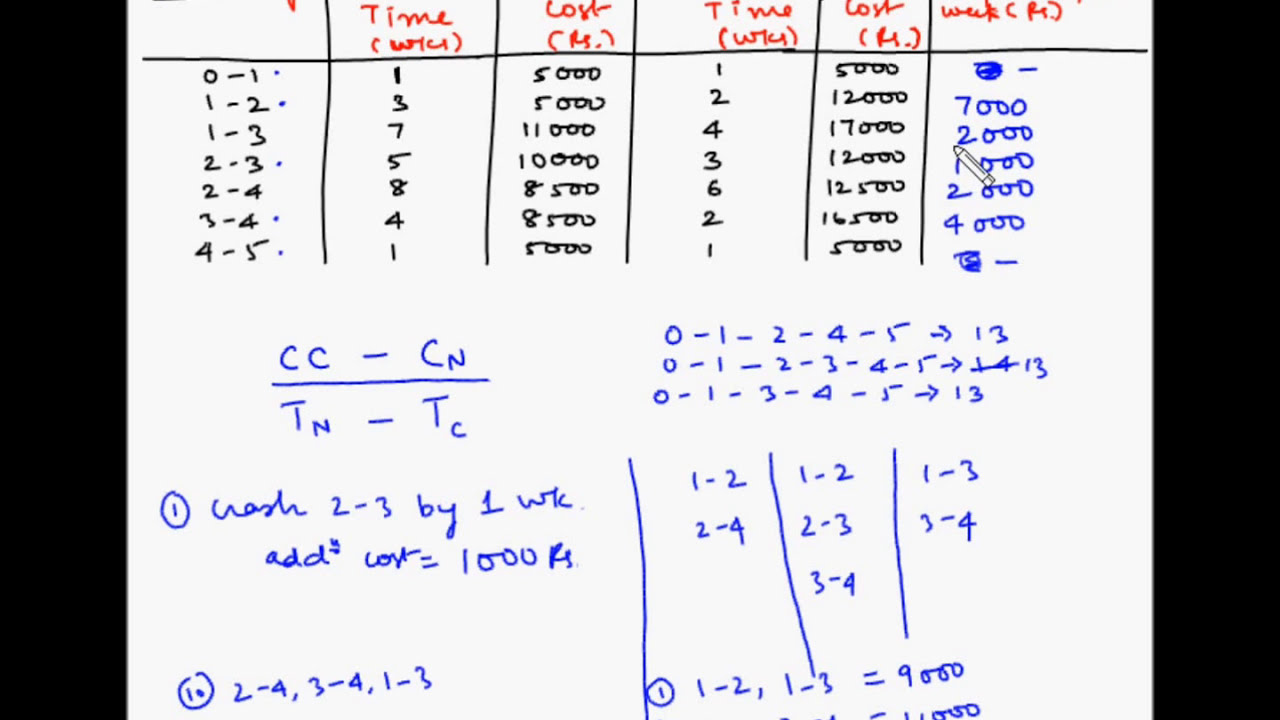 Time Cost Time Cost week (Rs.)
(wks) (Rs.) (wks) (Rs.)
0-1 · 1 5000 1 5000 -
1-2 · 3 5000 2 12000 7000
1-3 7 11000 4 17000 2000
2-3 · 5 10000 3 12000 1000
2-4 8 8500 6 12500 2000
3-4 · 4 8500 2 16500 4000
4-5 · 1 5000 1 5000 -
CC - CN
TN - TC
0-1-2-4-5 → 13
0-1-2-3-4-5 → 14 13
0-1-3-4-5 → 13
① crash 2-3 by 1 wk.
addn cost = 1000 Rs.
1-2 1-2 1-3
2-4 2-3 3-4
3-4
2-4, 3-4, 1-3
① 1-2, 1-3 = 9000
= 11000